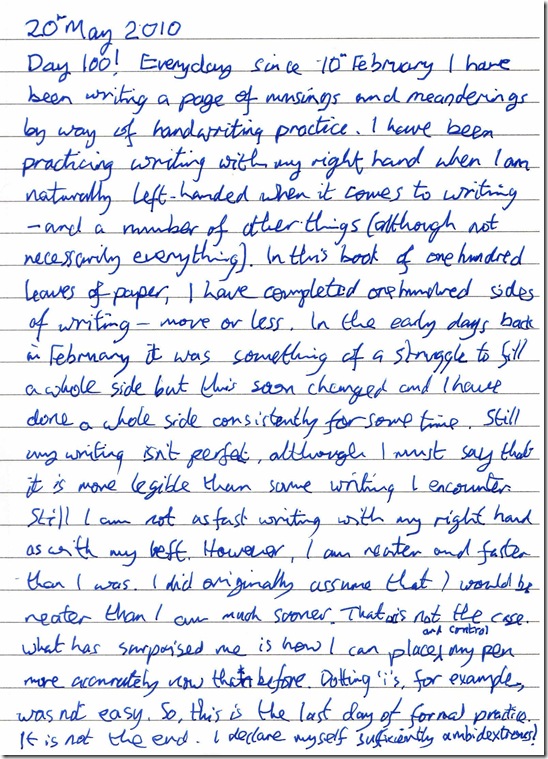 20th May 2010
Day 100! Everyday since 10th February I have
been writing a page of musings and meanderings
by way of handwriting practice. I have been
practicing writing with my right hand when I am
naturally left-handed when it comes to writing
– and a number of other things (although not
necessarily everything). In this book of one hundred
leaves of paper, I have completed one hundred sides
of writing – more or less. In the early days back
in February it was something of a struggle to fill
a whole side but this soon changed and I have
done a whole side consistently for some time. Still
my writing isn't perfect, although I must say that
it is more legible than some writing I encounter.
Still I am not as fast writing with my right hand
as with my left. However, I am neater and faster
than I was. I did originally assume that I would be
neater than I am much sooner. That is not the case.
What has surprised me is how I can place and control my pen
more accurately now than before. Dotting 'i's, for example,
was not easy. So, this is the last day of formal practice.
It is not the end. I declare myself sufficiently ambidextrous!